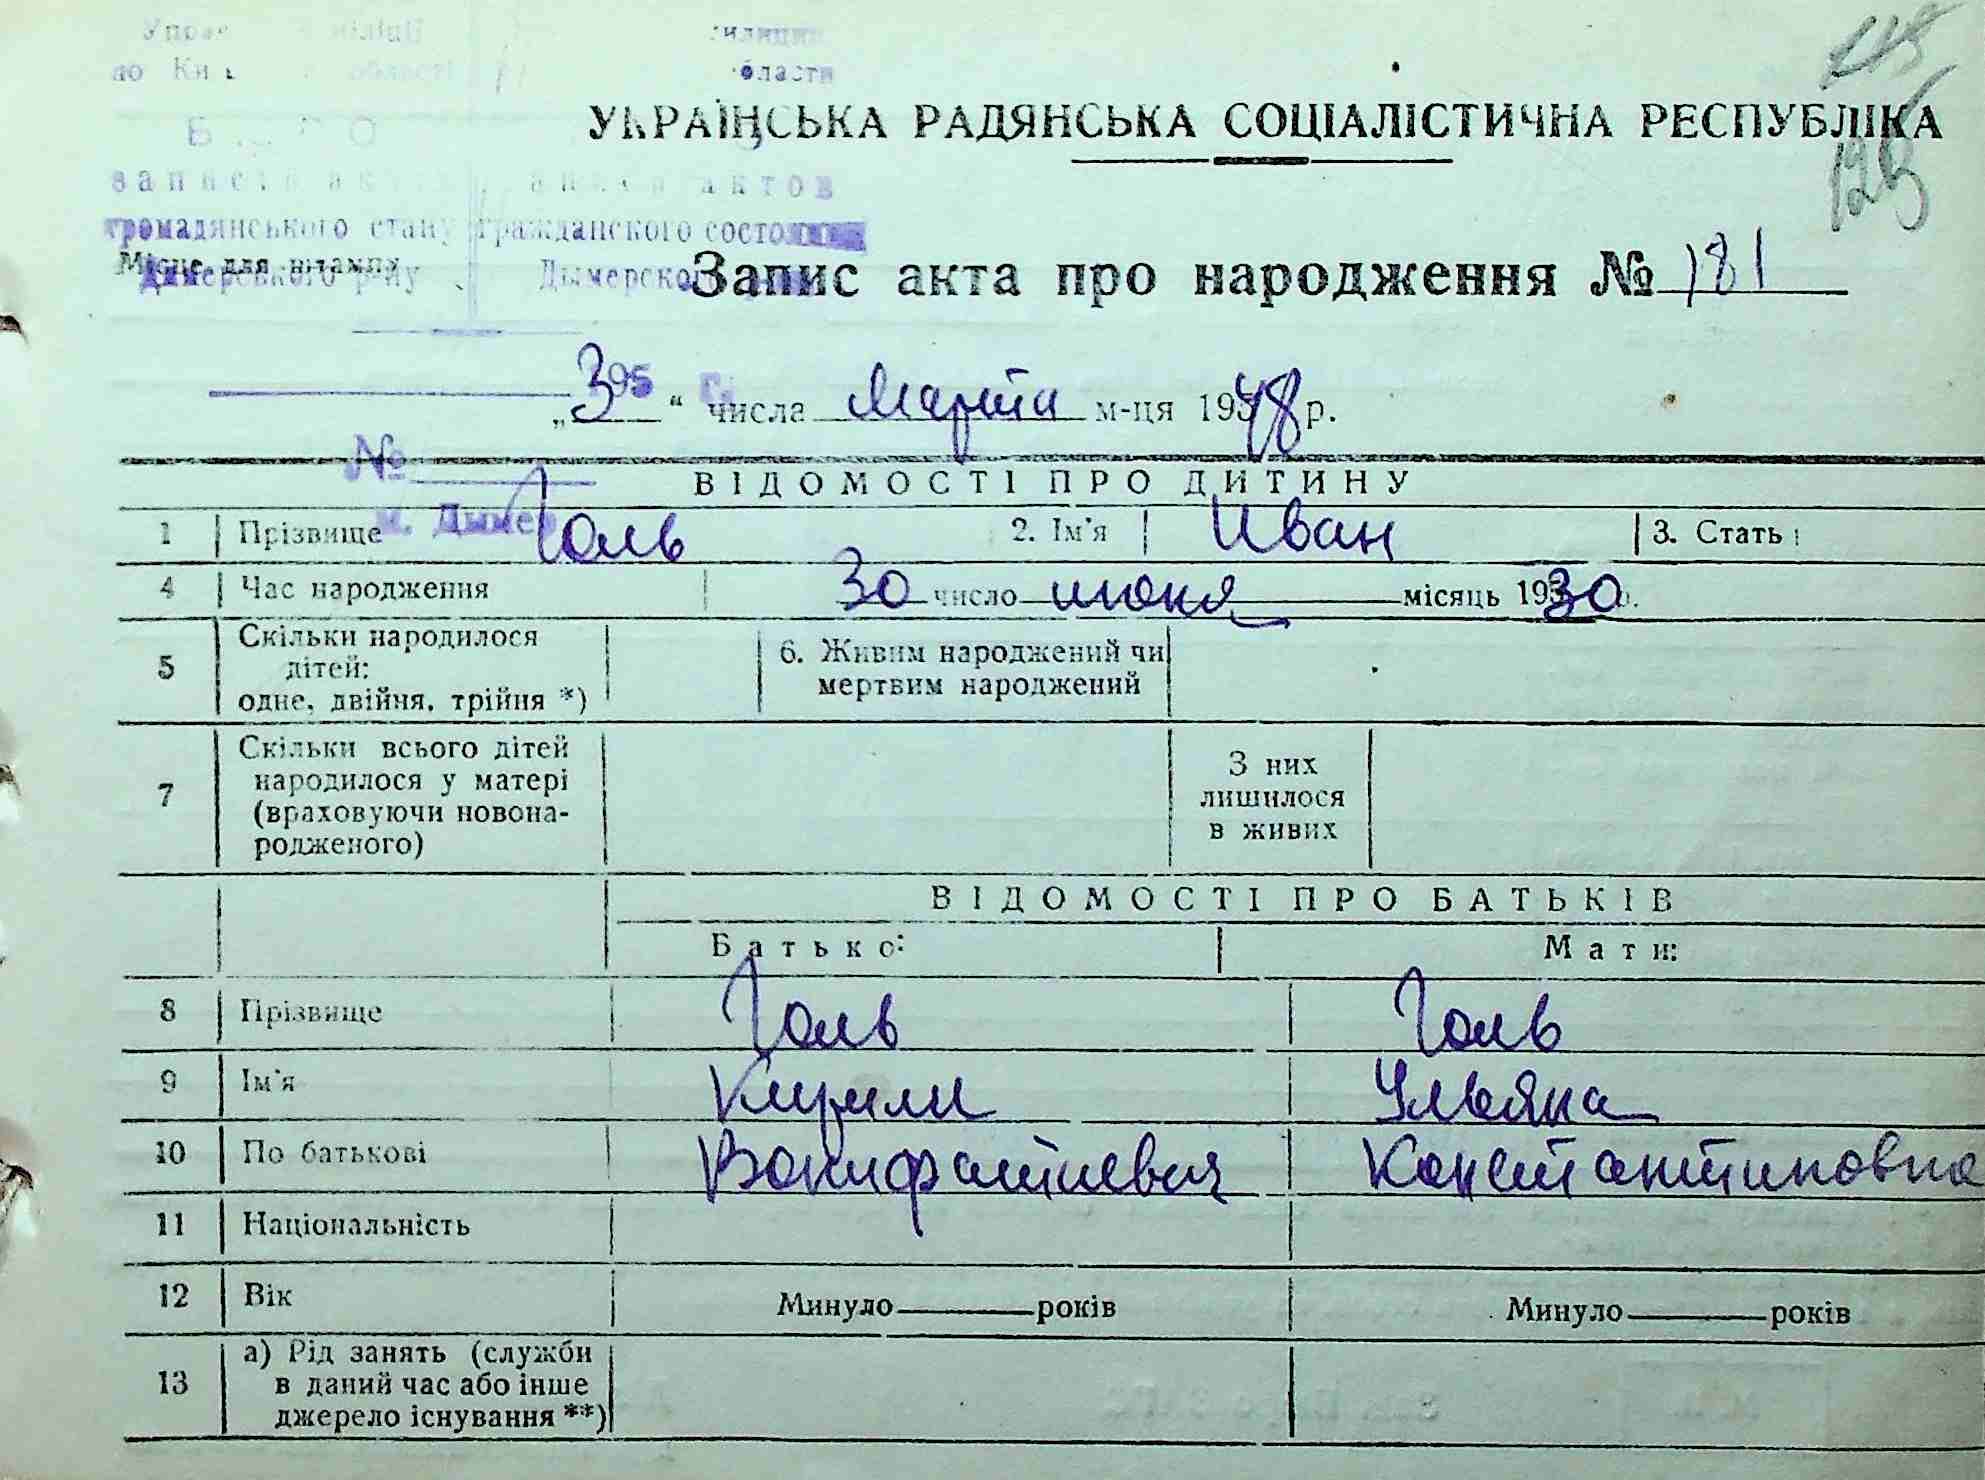 області
області
УКРАЇНСЬКА РАДЯНСЬКА СОЦІАЛІСТИЧНА РЕСПУБЛІКА
125
актов
громадянського стану гражданского состояния
Місце для штампу
Димерського р-ну Дымерского
Запис акта про народження № 181
195 г.
„3“ числа Марта м-ця 1948 р.
№
ВІДОМОСТІ ПРО ДИТИНУ
м. Дымер
1 Прізвище Голь 2. Ім'я Иван 3. Стать
4 Час народження 30 число июня місяць 1930 р.
5 Скільки народилося дітей: одне, двійня, трійня *) 6. Живим народжений чи мертвим народжений
7 Скільки всього дітей народилося у матері (враховуючи новонародженого) З них лишилося в живих
ВІДОМОСТІ ПРО БАТЬКІВ
Батько: Мати:
8 Прізвище Голь Голь
9 Ім'я Кирилл Ульяна
10 По батькові Вонифатиевич Константиновна
11 Національність
12 Вік Минуло років Минуло років
13 а) Рід занять (служби в даний час або інше джерело існування **)